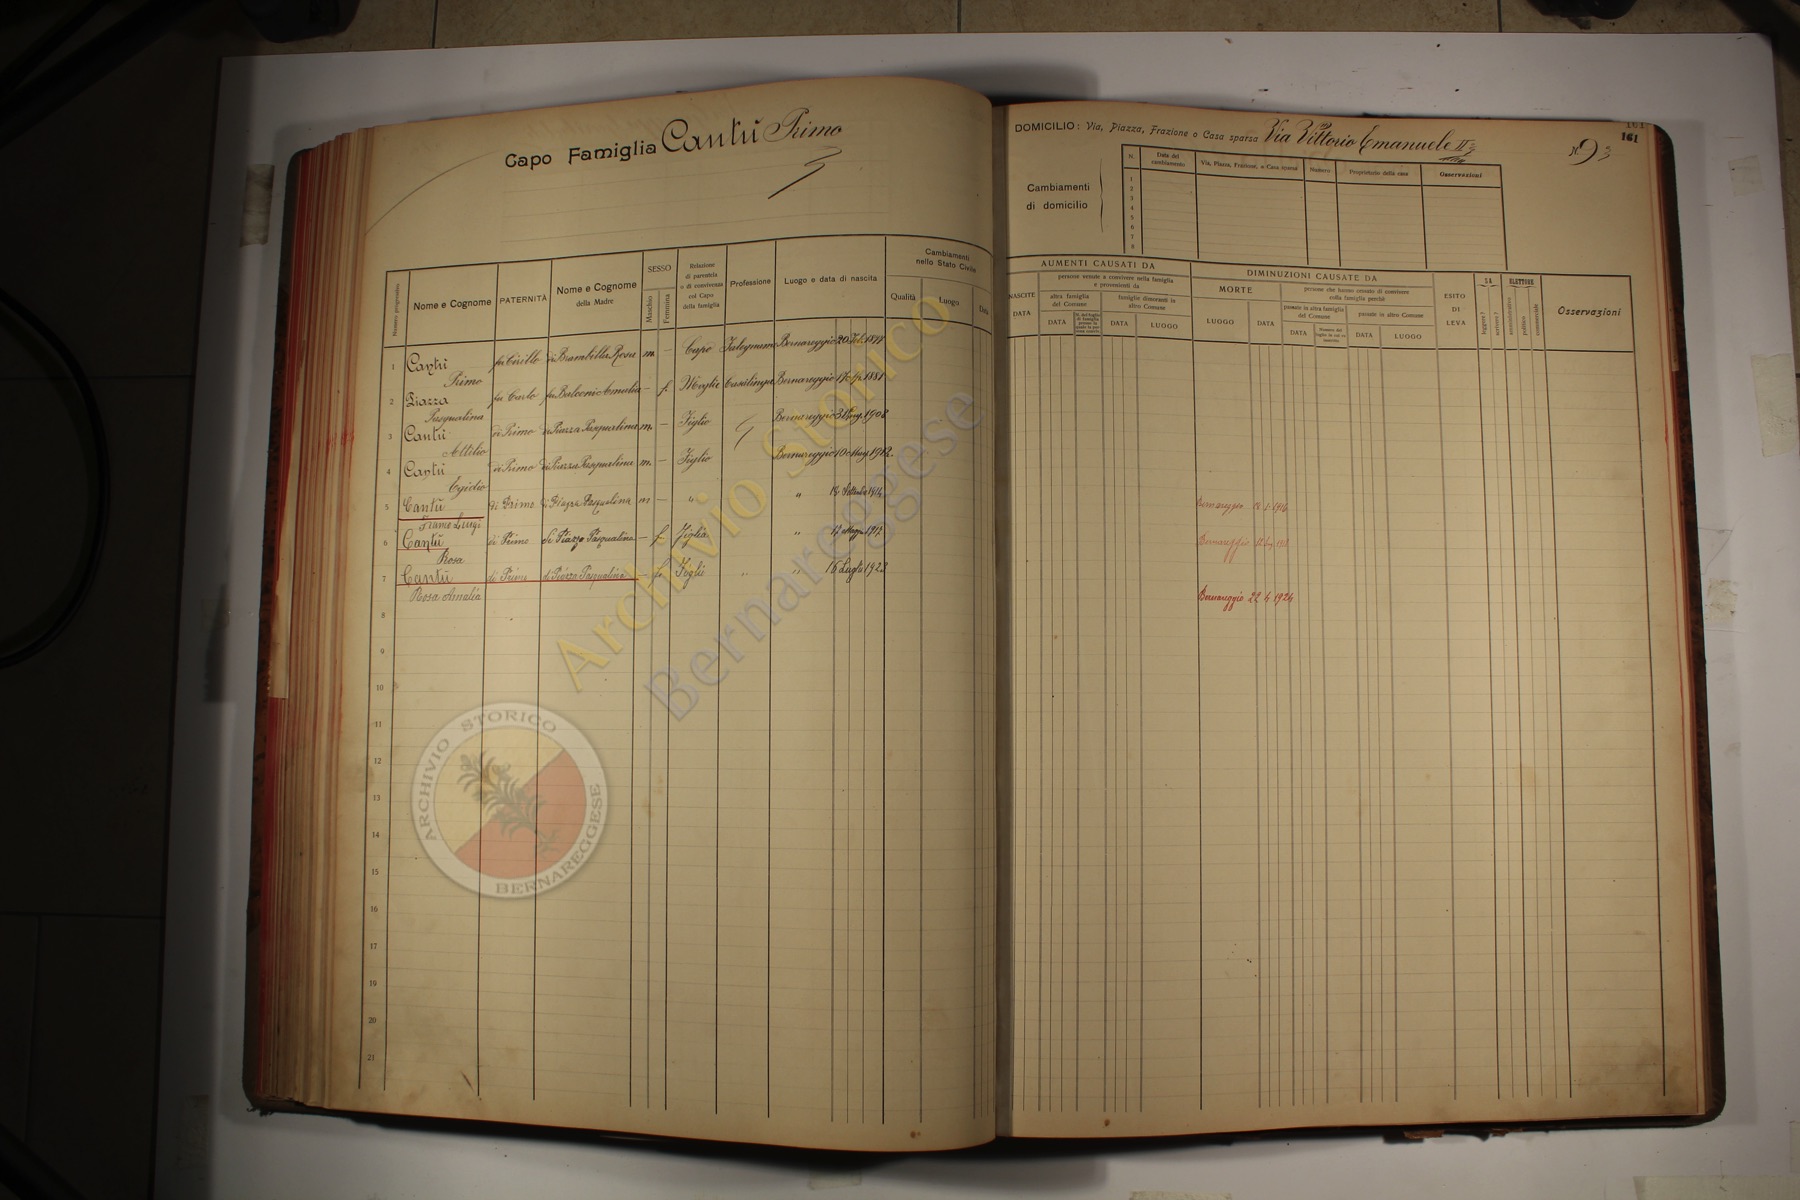 Capo Famiglia Cantù Primo
DOMICILIO: Via, Piazza, Frazione o Casa sparsa Via Vittorio Emanuele II N° 93
161
Cambiamenti di domicilio
N. Data del cambiamento Via, Piazza, Frazione, o Casa sparsa Numero Proprietario della casa Osservazioni
1
2
3
4
5
6
7
8
Numero progressivo Nome e Cognome PATERNITÀ Nome e Cognome della Madre SESSO Maschio Femmina Relazione di parentela o di convivenza col Capo della famiglia Professione Luogo e data di nascita Cambiamenti nello Stato Civile Qualità Luogo Data
AUMENTI CAUSATI DA
NASCITE DATA
persone venute a convivere nella famiglia e provenienti da
altra famiglia del Comune DATA
famiglie dimoranti in altro Comune DATA LUOGO
DIMINUZIONI CAUSATE DA
MORTE LUOGO DATA
persone che hanno cessato di convivere colla famiglia perchè
passate in altra famiglia del Comune DATA
passate in altro Comune DATA LUOGO
ESITO DI LEVA
SA leggere? scrivere?
ELETTORE amministrativo politico commerciale
Osservazioni
1 Cantù Primo fu Cirillo di Brambilla Rosa m — Capo Falegname Bernareggio 20 1878
2 Piazza Pasqualina fu Carlo fu Balconi Amalia — f. Moglie Casalinga Bernareggio 17 1881
3 Cantù Attilio di Primo di Piazza Pasqualina m. — Figlio Bernareggio 1908
4 Cantù Egidio di Primo di Piazza Pasqualina m. — Figlio Bernareggio 10 Mag. 1912
5 Cantù Luigi di Primo di Piazza Pasqualina m — " " Settembre 1914 Bernareggio 1916
6 Cantù Rosa di Primo di Piazza Pasqualina — f. Figlia " 17 Maggio 1917 Bernareggio
7 Cantù Rosa Amalia di Primo di Piazza Pasqualina — f. Figlia " " 16 Luglio 1923 Bernareggio 22 4 1924
8
9
10
11
12
13
14
15
16
17
18
19
20
21
Archivio Storico
Bernareggese
ARCHIVIO STORICO
BERNAREGGESE